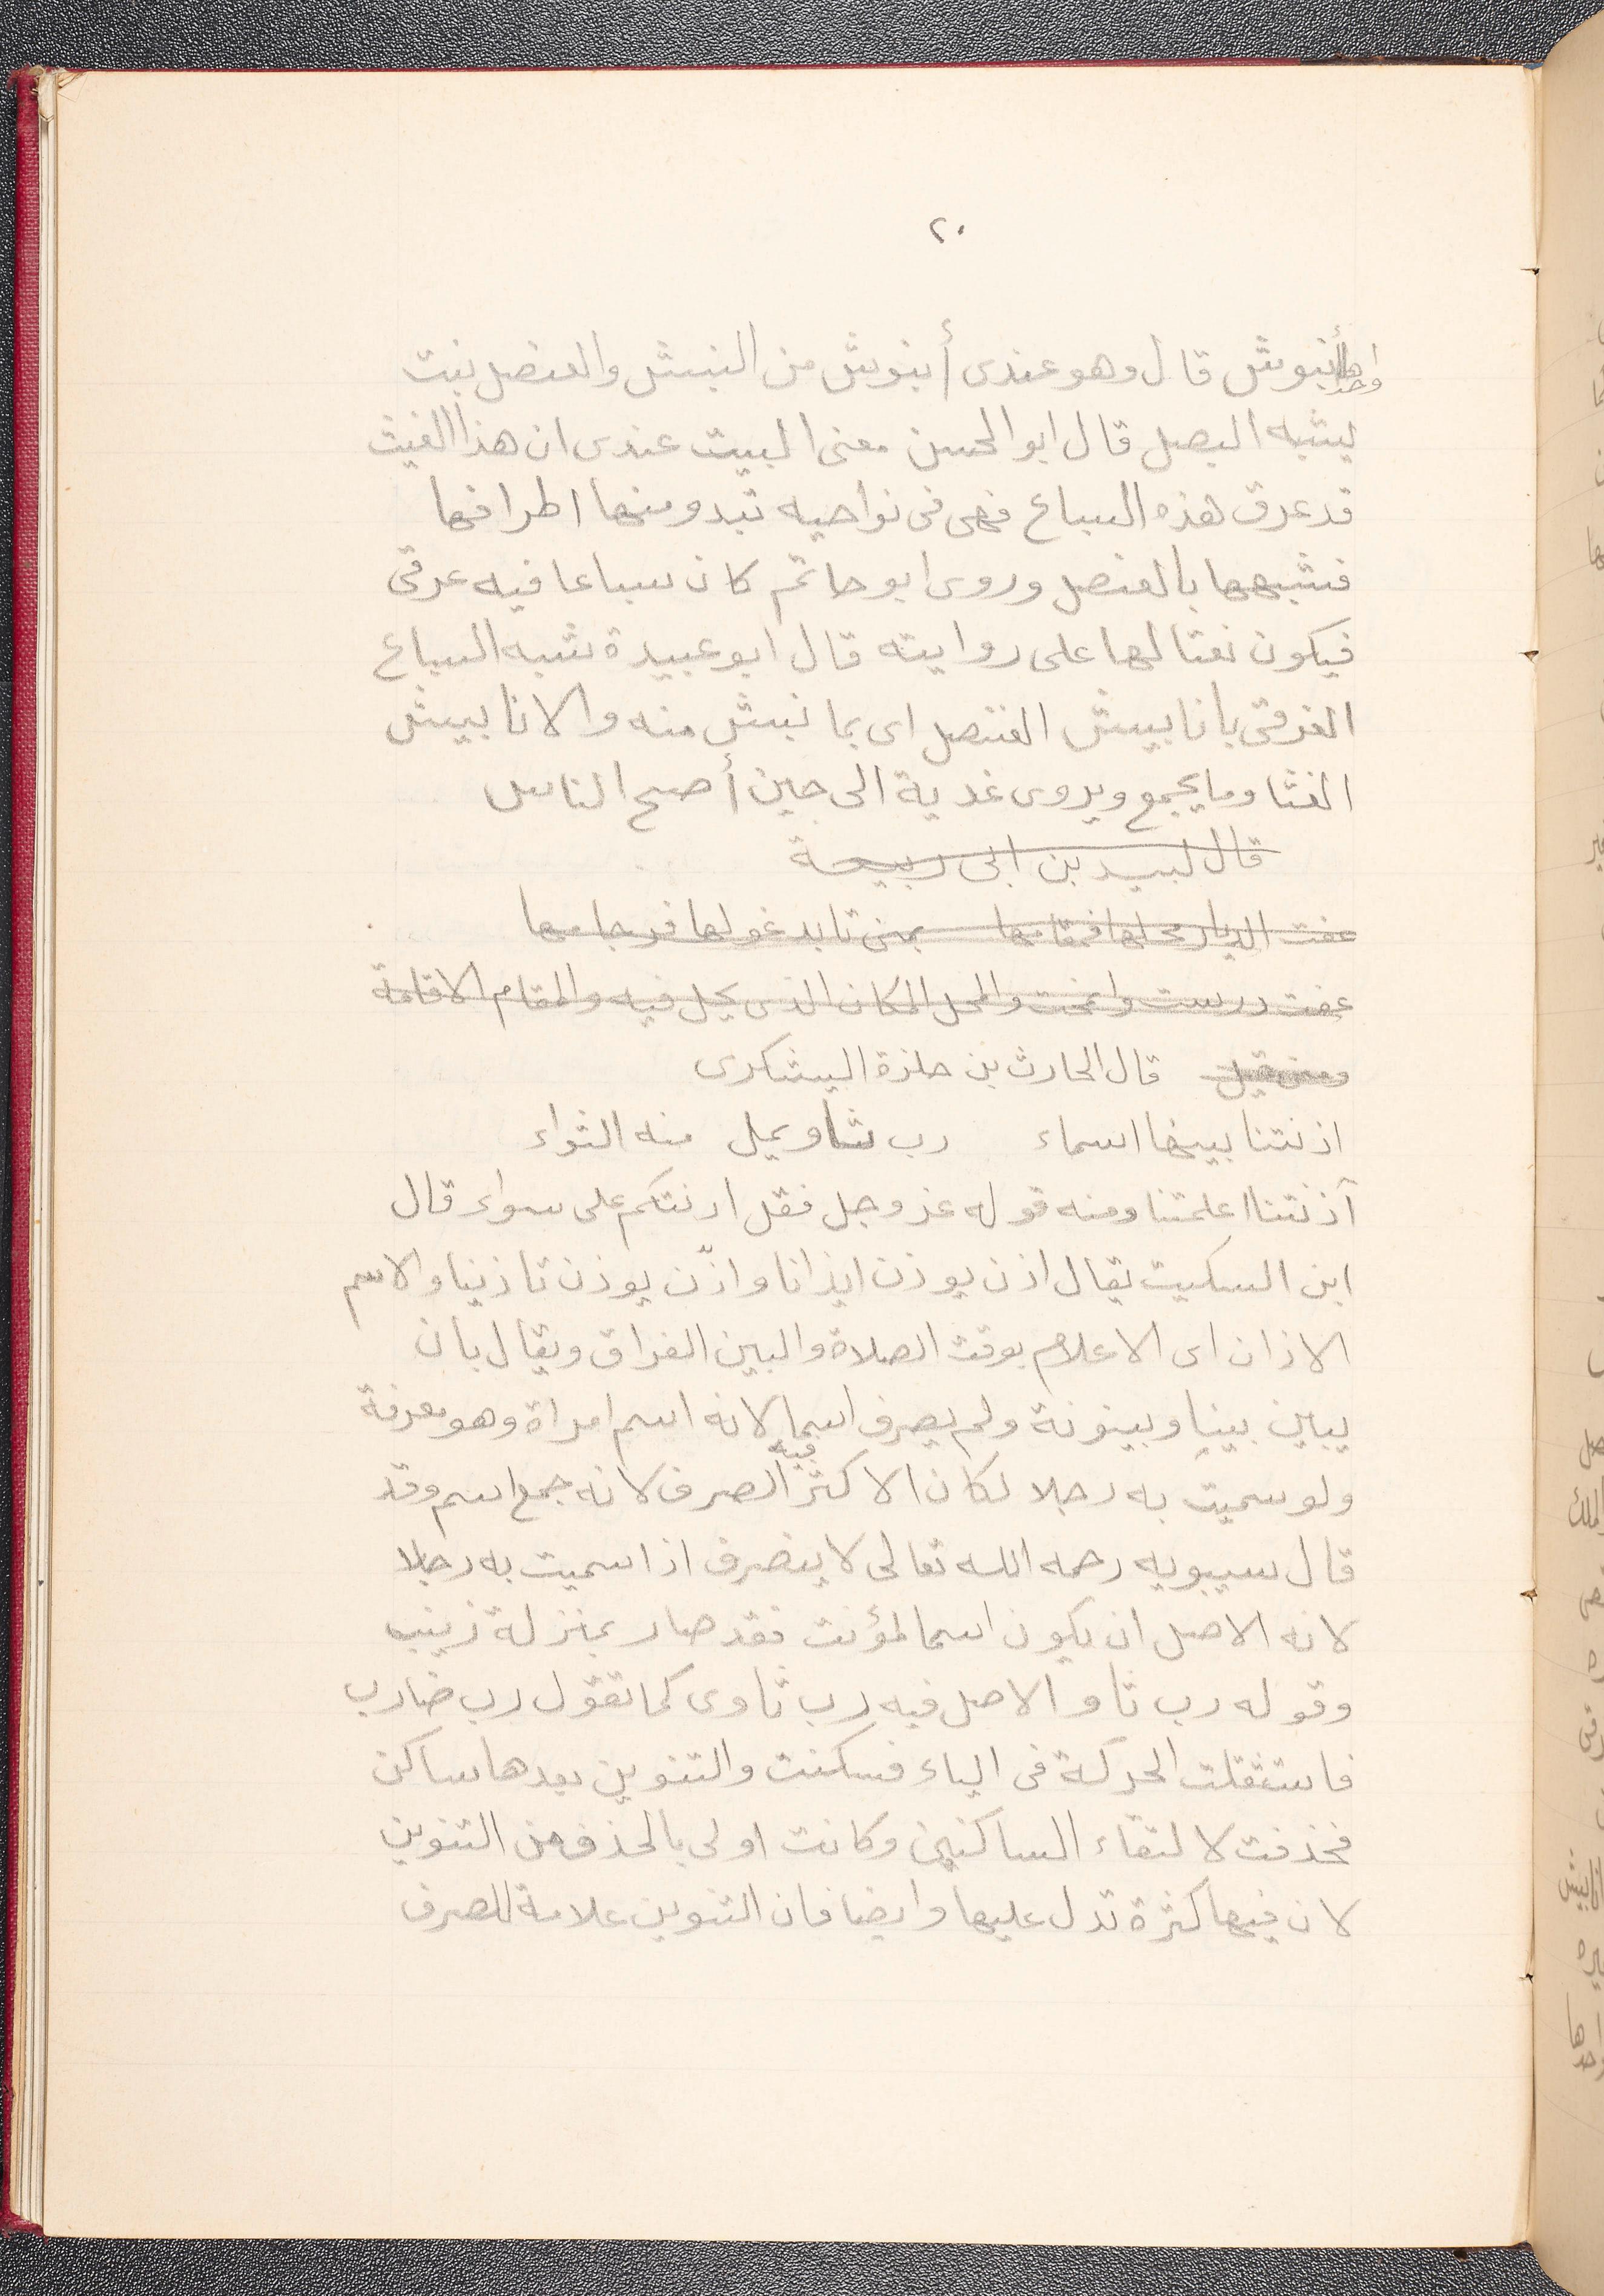 ٢٠
واحدها أنبوش قال وهو عندى أنبوش من النبش والعنصل نبت
يشبه البصل قال ابو الحسن معنى البيت عندى ان هذا الغيث
قد غرق هذه السباع فهى فى نواحيه تبدو منها اطرافها
فشبهها بالعنصل وروى ابو حاتم كان سباعا فيه غرقى
فيكون نعتا لها على روايته قال ابو عبيدة شبه السباع
الغرقى بانابيش العنصل اى بما نبش منه والانابيش
الغثا وما يجمع ويروى غدية الى حين أصبح الناس
قال لبيد بن ابى ربيعة
عفت الديار محلها فمقامها بمنى تابد غولها فرجامها
عفت درست وانمحت والمحل المكان الذى يحل فيه والمقام الاقامة
ومنى قيل قال الحارث بن حلزة اليشكرى
اذنتنا ببينها اسماء رب ثاو يمل منه الثواء
آذنتنا اعلمتنا ومنه قوله عز وجل فقل اذنتكم على سواء قال
ابن السكيت يقال اذن يوذن ايذانا واذّن يوذن تاذينا والاسم
الاذان اى الاعلام بوقت الصلاة والبين الفراق ويقال بان
يبين بينا وبينونة ولم يصرف اسما لانه اسم امراة وهو معرفة
ولو سميت به رجلا لكان الاكثر فيه الصرف لانه جمع اسم وقد
قال سيبويه رحمه الله تعالى لا ينصرف اذا سميت به رجلا
لانه الاصل ان يكون اسما لمؤنث فقد صار بمنزلة زينب
وقوله رب ثاو الاصل فيه رب ثاوى كما تقول رب ضارب
فاستثقلت الحركة فى الياء فسكنت والتنوين بعدها ساكن
فحذفت لالتقاء الساكنين وكانت اولى بالحذف من التنوين
لان فيها كثرة تدل عليها وايضا فان التنوين علامة للصرف